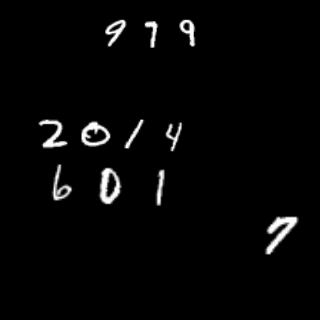 979
2014
601
7